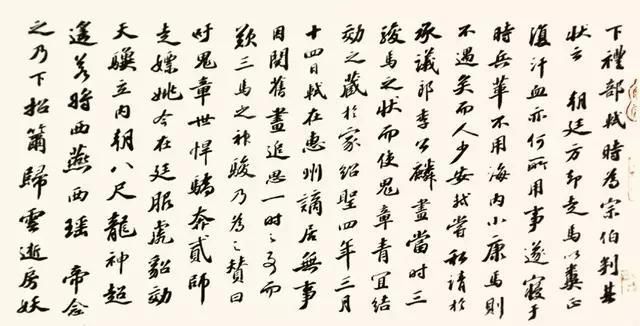 下禮部軾時為宗伯判其
狀云 朝廷方却走馬以糞正
復汗血亦何所用事遂寢于
時兵革不用海内小康馬則
不遇矣而人少安軾嘗私請於
承議郎李公麟畫當時三
駿馬之狀而使鬼章青宜結
効之藏於家紹聖四年三月
十四日軾在惠州謫居無事
因閱舊畫追思一時之事而
歎三馬之神駿乃為之贊曰
吁鬼章世悍驕奔貳師
走嫖姚今在廷服虎貂効
天驥立内朝八尺龍神超
遥若將西燕西瑤 帝念
之乃下招籋歸雲逝房妖